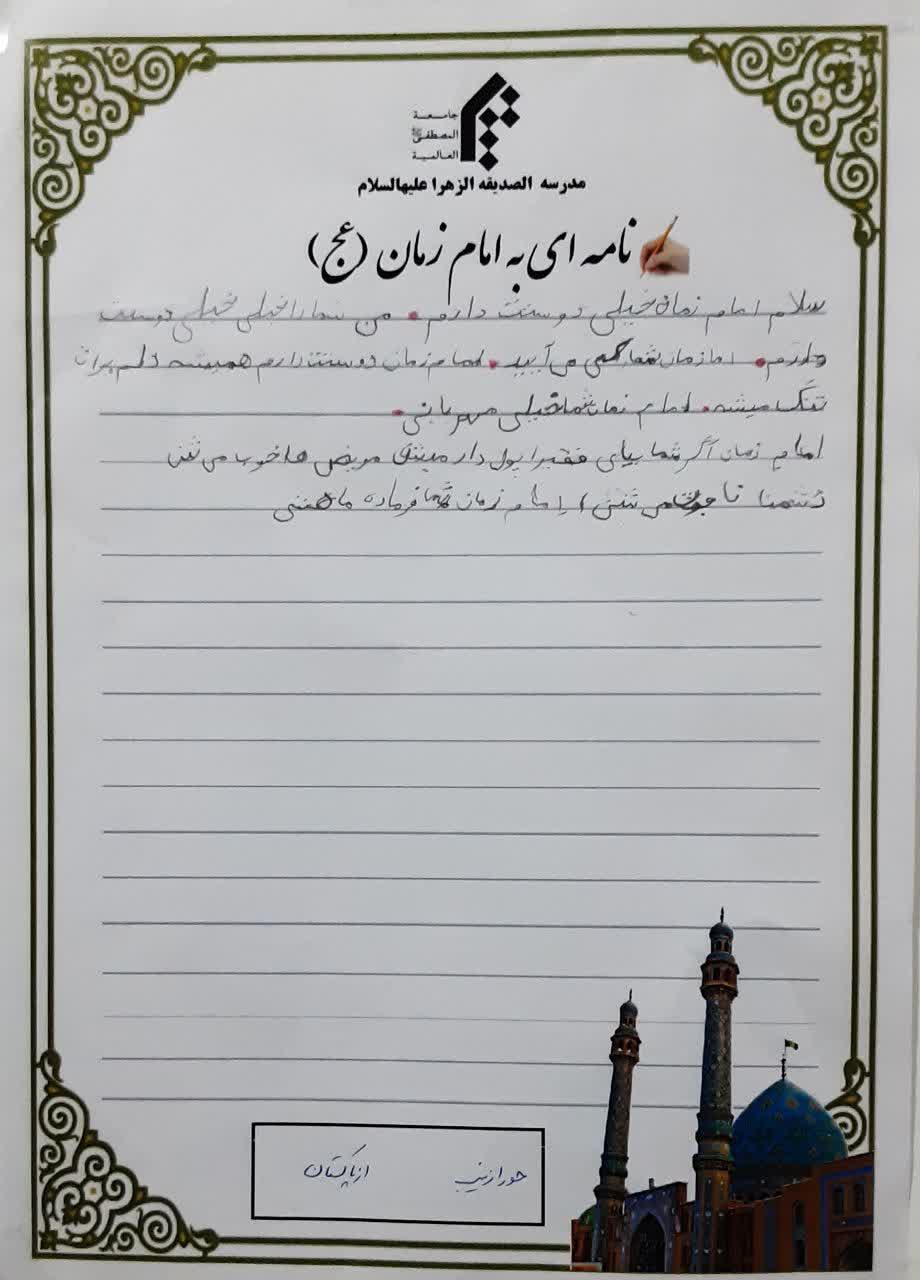 جامعة
المصطفی ﷺ
العالمية
مدرسه الصدیقه الزهرا علیهاالسلام
نامه ای به امام زمان (عج)
سلام امام زمان خیلی دوستت دارم. من شما را خیلی خیلی دوست
دارم. اما زمان شما کی می آیید. امام زمان دوستت دارم همیشه دلم برات
تنگ میشه. امام زمان شما خیلی مهربانی.
امام زمان اگر شما بیای فقیرا پول دار میشن مریض ها خوب می شن
دشمنا می شن امام زمان شما فرمانده ما هستی
حورا زینب از پاکستان